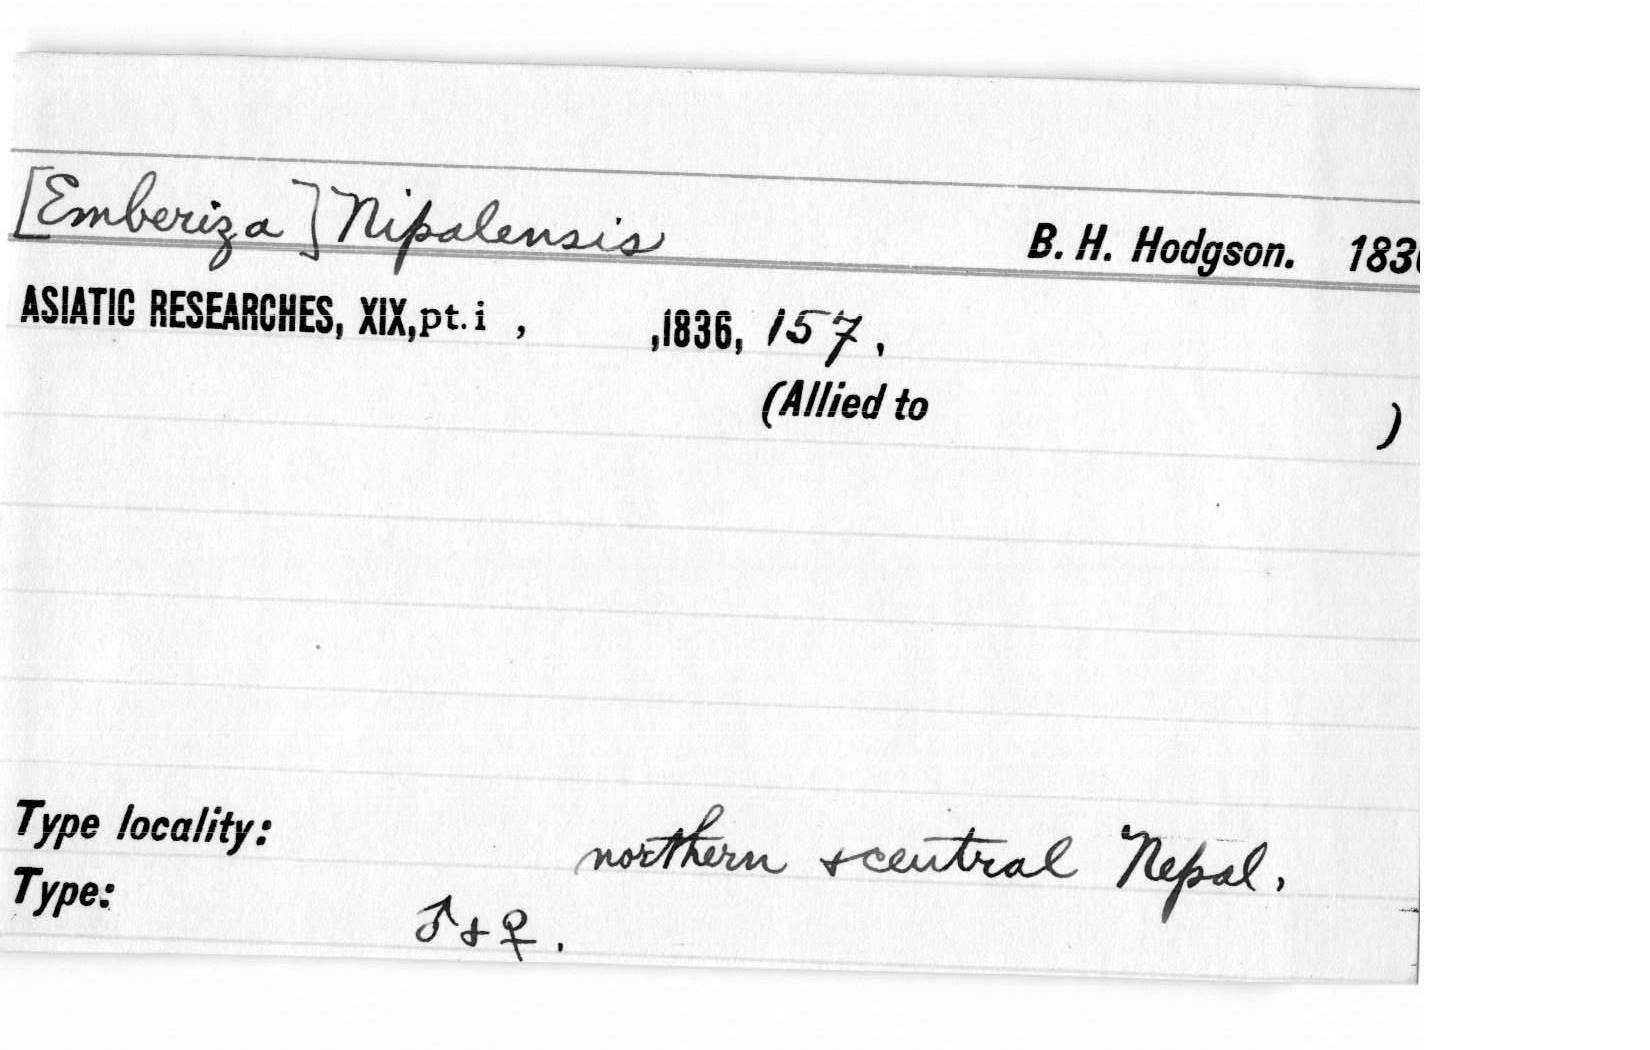 [Emberiza] Nipalensis B. H. Hodgson. 183
ASIATIC RESEARCHES, XIX, pt. i , ,1836, 157.
(Allied to )
Type locality: northern & central Nepal.
Type: ♂ & ♀.